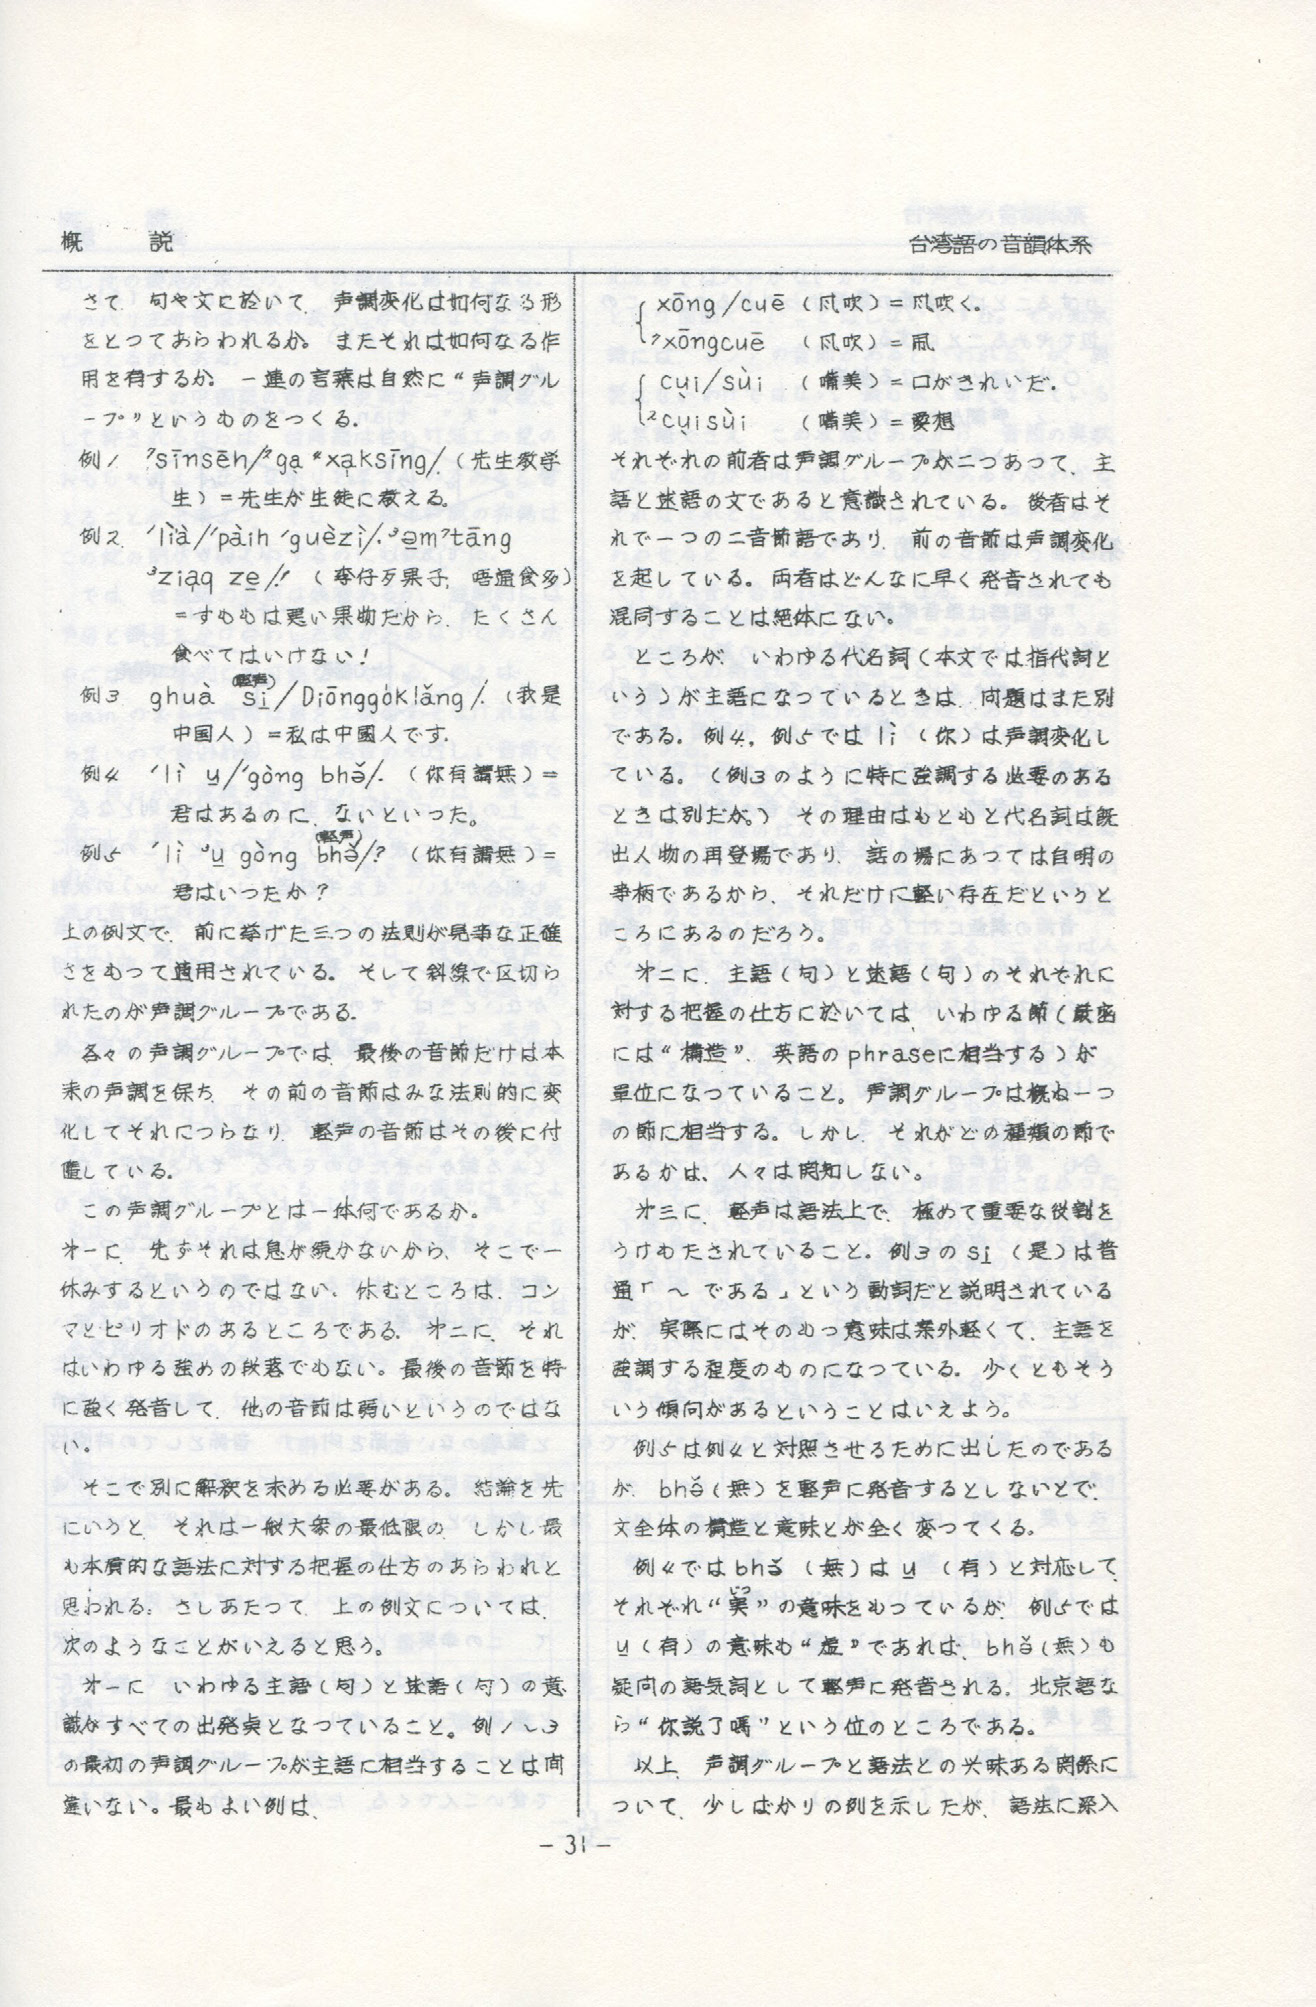 概　説
台湾語の音韻体系
さて、句や文に於いて、声調変化は如何なる形
をとつてあらわれるか。またそれは如何なる作
用を有するか。一連の言葉は自然に“声調グル
ープ”というものをつくる。
例1 ⁷sīnsēn/²gạ ⁸xạksīng/.（先生教学
生）＝先生が生徒に教える。
例2 ′lìà/′pàih ′guèzì/.³ə̱m⁷tāng
³ziạq ze̱/!（李仔歹果子，唔通食多）
＝すももは悪い果物だから、たくさん
食べてはいけない！
例3 ghuà si̱(軽声)/Diōnggók lǎng/.（我是
中国人）＝私は中國人です.
例4 ′lì u̱/′gòng bhə̌/.（你有講無）＝
君はあるのに、ないといつた。
例5 ′lì ³u̱ gòng bhə̌(軽声)/?（你有講無）＝
君はいつたか？
上の例文で、前に挙げた三つの法則が見事な正確
さをもつて適用されている。そして斜線で区切ら
れたのが声調グループである.
各々の声調グループでは、最後の音節だけは本
来の声調を保ち、その前の音節はみな法則的に変
化してそれにつらなり、軽声の音節はその後に付
置している。
この声調グループとは一体何であるか。
才一に、先ずそれは息が続かないから、そこで一
休みするというのではない. 休むところは、コン
マとピリオドのあるところである. 才二に、それ
はいわゆる強めの段落でもない。最後の音節を特
に強く発音して、他の音節は弱いというのではな
い。
そこで別に解釈を求める必要がある。結論を先
にいうと、それは一般大衆の最低限の、しかし最
も本質的な語法に対する把握の仕方のあらわれと
思われる. さしあたつて、上の例文については、
次のようなことがいえると思う。
才一に、いわゆる主語(句)と述語(句)の意
識がすべての出発点となつていること。例1～3
の最初の声調グループが主語に相当することは間
違いない。最もよい例は、
xōng/cuē（风吹）＝风吹く。
⁷xōngcuē（风吹）＝凧
cụi/sùi（嘴美）＝口がきれいだ.
²cụisùi（嘴美）＝愛想
それぞれの前者は声調グループが二つあつて、主
語と述語の文であると意識されている。後者はそ
れで一つの二音節語であり、前の音節は声調変化
を起している。両者はどんなに早く発音されても
混同することは絶体にない。
ところが、いわゆる代名詞(本文では指代詞と
いう)が主語になつているときは、問題はまた別
である。例4，例5では lì（你）は声調変化し
ている。（例3のように特に強調する必要のある
ときは別だが。）その理由はもともと代名詞は既
出人物の再登場であり、話の場にあつては自明の
事柄であるから、それだけに軽い存在だというと
ころにあるのだろう。
才二に、主語(句)と述語(句)のそれぞれに
対する把握の仕方に於いては、いわゆる節(厳密
には“構造”、英語のphraseに相当する)が
単位になつていること。声調グループは概ね一つ
の節に相当する。しかし、それがどの種類の節で
あるかは、人々は関知しない。
才三に、軽声は語法上で、極めて重要な役割を
うけもたされていること。例3のsi̱（是）は普
通「～である」という動詞だと説明されている
が、実際にはそのもつ意味は案外軽くて、主語を
強調する程度のものになつている。少くともそう
いう傾向があるということはいえよう。
例5は例4と対照させるために出したのである
が、bhə̌（無）を軽声に発音するとしないとで、
文全体の構造と意味とが全く変つてくる。
例4ではbhə̌（無）はu̱（有）と対応して、
それぞれ“実(じつ)”の意味をもつているが、例5では
u̱（有）の意味も“虚”であれば、bhə̌（無）も
疑問の語気詞として軽声に発音される. 北京語な
ら“你説了嗎”という位のところである。
以上、声調グループと語法との興味ある関係に
ついて、少しばかりの例を示したが、語法に深入
－31－